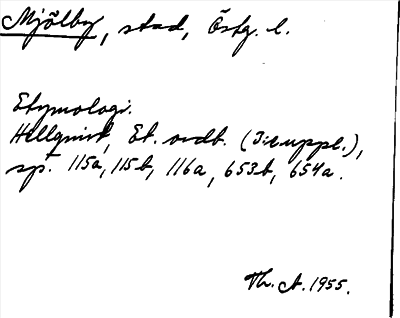 Mjölby, stad, Östg. l.
Etymologi.
Hellquist, Et. ordb. (3:e uppl.),
sp. 115a, 115b, 116a, 653b, 654a.
Th. A. 1955.